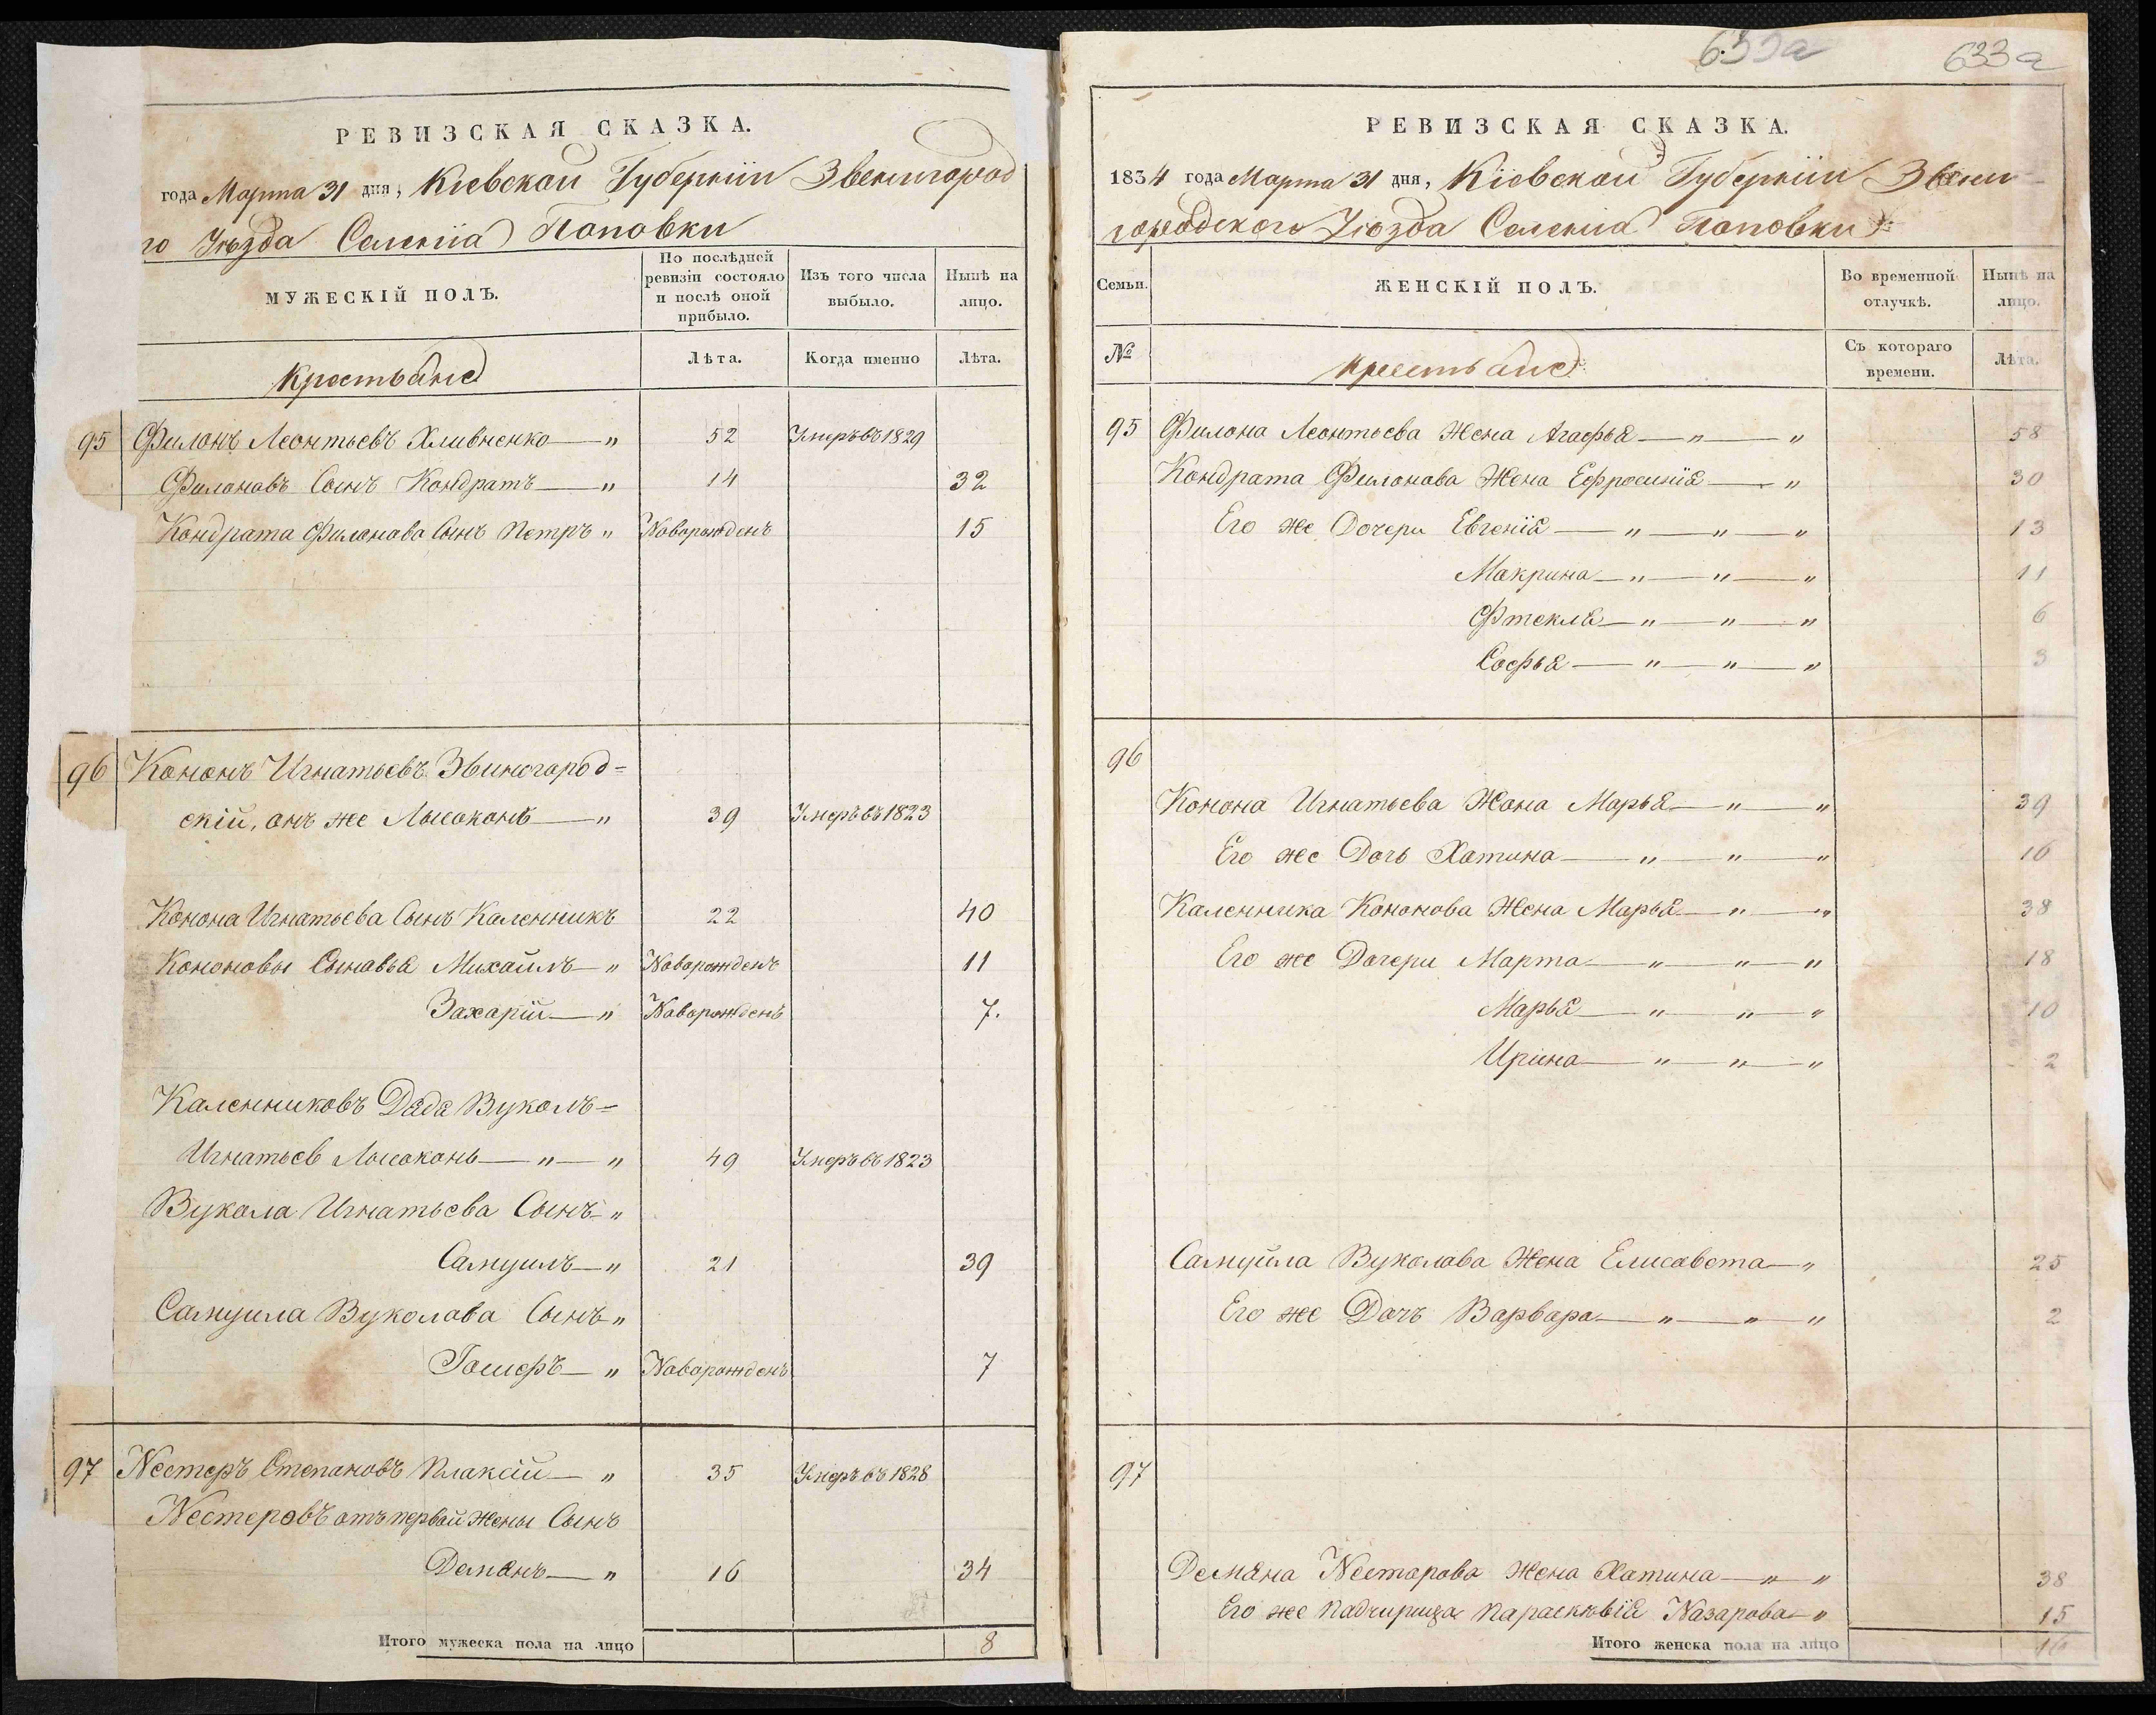 РЕВИЗСКАЯ СКАЗКА.
года Марта 31 дня, Кіевской Губерніи Звенигород
го Уѣзда Селенія Поповки
МУЖЕСКІЙ ПОЛЪ.
По послѣдней ревизіи состояло и послѣ оной прибыло.
Изъ того числа выбыло.
Нынѣ на лицо.
Крестьяне
Лѣта.
Когда именно
Лѣта.
95 Филонъ Леонтьевъ Хливненко — " 52 Умръ въ 1829
Филоновъ Сынъ Кондратъ — " 14 32
Кондрата Филонова Сынъ Петръ " Новорожденъ 15
96 Кононъ Игнатьевъ Звиногород=
скій, онъ же Лысоконь — " 39 Умеръ въ 1823
Конона Игнатьева Сынъ Каленникъ 22 40
Кононовы Сыновья Михайлъ — " Новорожденъ 11
Захарій — " Новорожденъ 7.
Каленниковъ Дядя Вуколъ =
Игнатьев Лысоконь — " — " 49 Умеръ въ 1823
Вукола Игнатьева Сынъ — "
Самуилъ — " 21 39
Самуила Вуколова Сынъ "
— " Новорожденъ 7
97 Нестеръ Степановъ Плаксій — " 35 Умеръ въ 1828
Нестеровъ отъ первой жены Сынъ
Демянъ — " 16 34
Итого мужеска пола на лицо 8
633а
633а
РЕВИЗСКАЯ СКАЗКА.
1834 года Марта 31 дня, Кіевской Губерніи Звени
городского Уіозда Селенія Поповки
Семьи.
ЖЕНСКІЙ ПОЛЪ.
Во временной отлучкѣ.
Нынѣ на лицо.
№
Крестьяне
Съ котораго времени.
Лѣта.
95 Филона Леонтьева Жена Агафья — " — " 58
Кондрата Филонова Жена Ефросинія — " 30
Его же Дочери Евгенія — " — " — " 13
Макрина — " — " — " 11
Фтекля — " — " — " 6
Софья — " — " — " 3
96
Конона Игнатьева Жона Марья — " — " 39
Его же Дочь Хатина — " — " — " 16
Каленника Кононова Жена Марья — " — " 38
Его же Дочери Марта — " — " — " 18
Марья — " — " — " 10
Ирина — " — " — " 2
Самуйла Вуколова Жена Елисавета — " 25
Его же Дочъ Варвара — " — " — " 2
97
Демяна Нестарова Жена Хатина — " — " 38
Его же Падчирица Параскѣвія Назарова — " 15
Итого женска пола на лицо 16